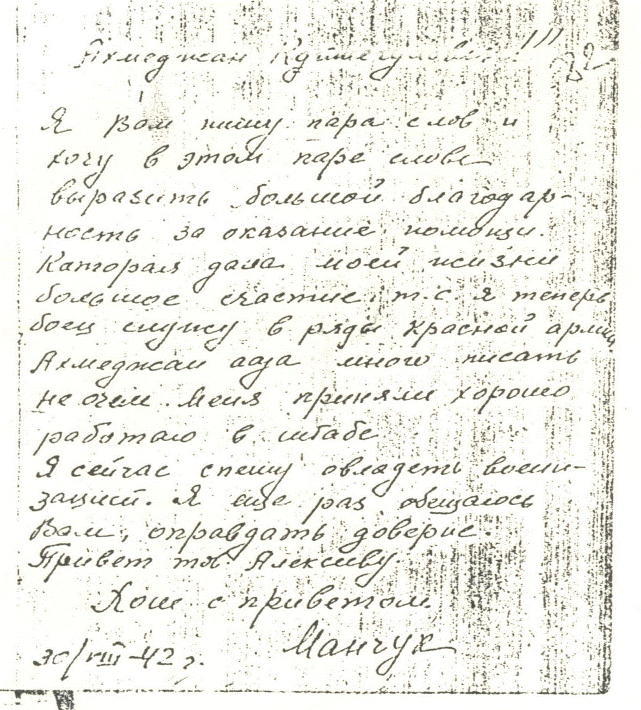 Ахмеджан
22
Я Вам пишу пара слов и
хочу в этом паре слове
выразить большой благодар-
ность за оказание помощи.
Каторая дала моей жизни
большое счастие, т.е. я теперь
боец служу в ряды красной армии
Ахмеджан ага много писать
не очем. Меня приняли хорошо
работаю в штабе
Я сейчас спешу овладеть воени-
зацией. Я еще раз обещаюсь
Вам, оправдать доверие.
Привет тов Алексиеву.
Хош с приветом.
Маншук
30/VIII-42 г.